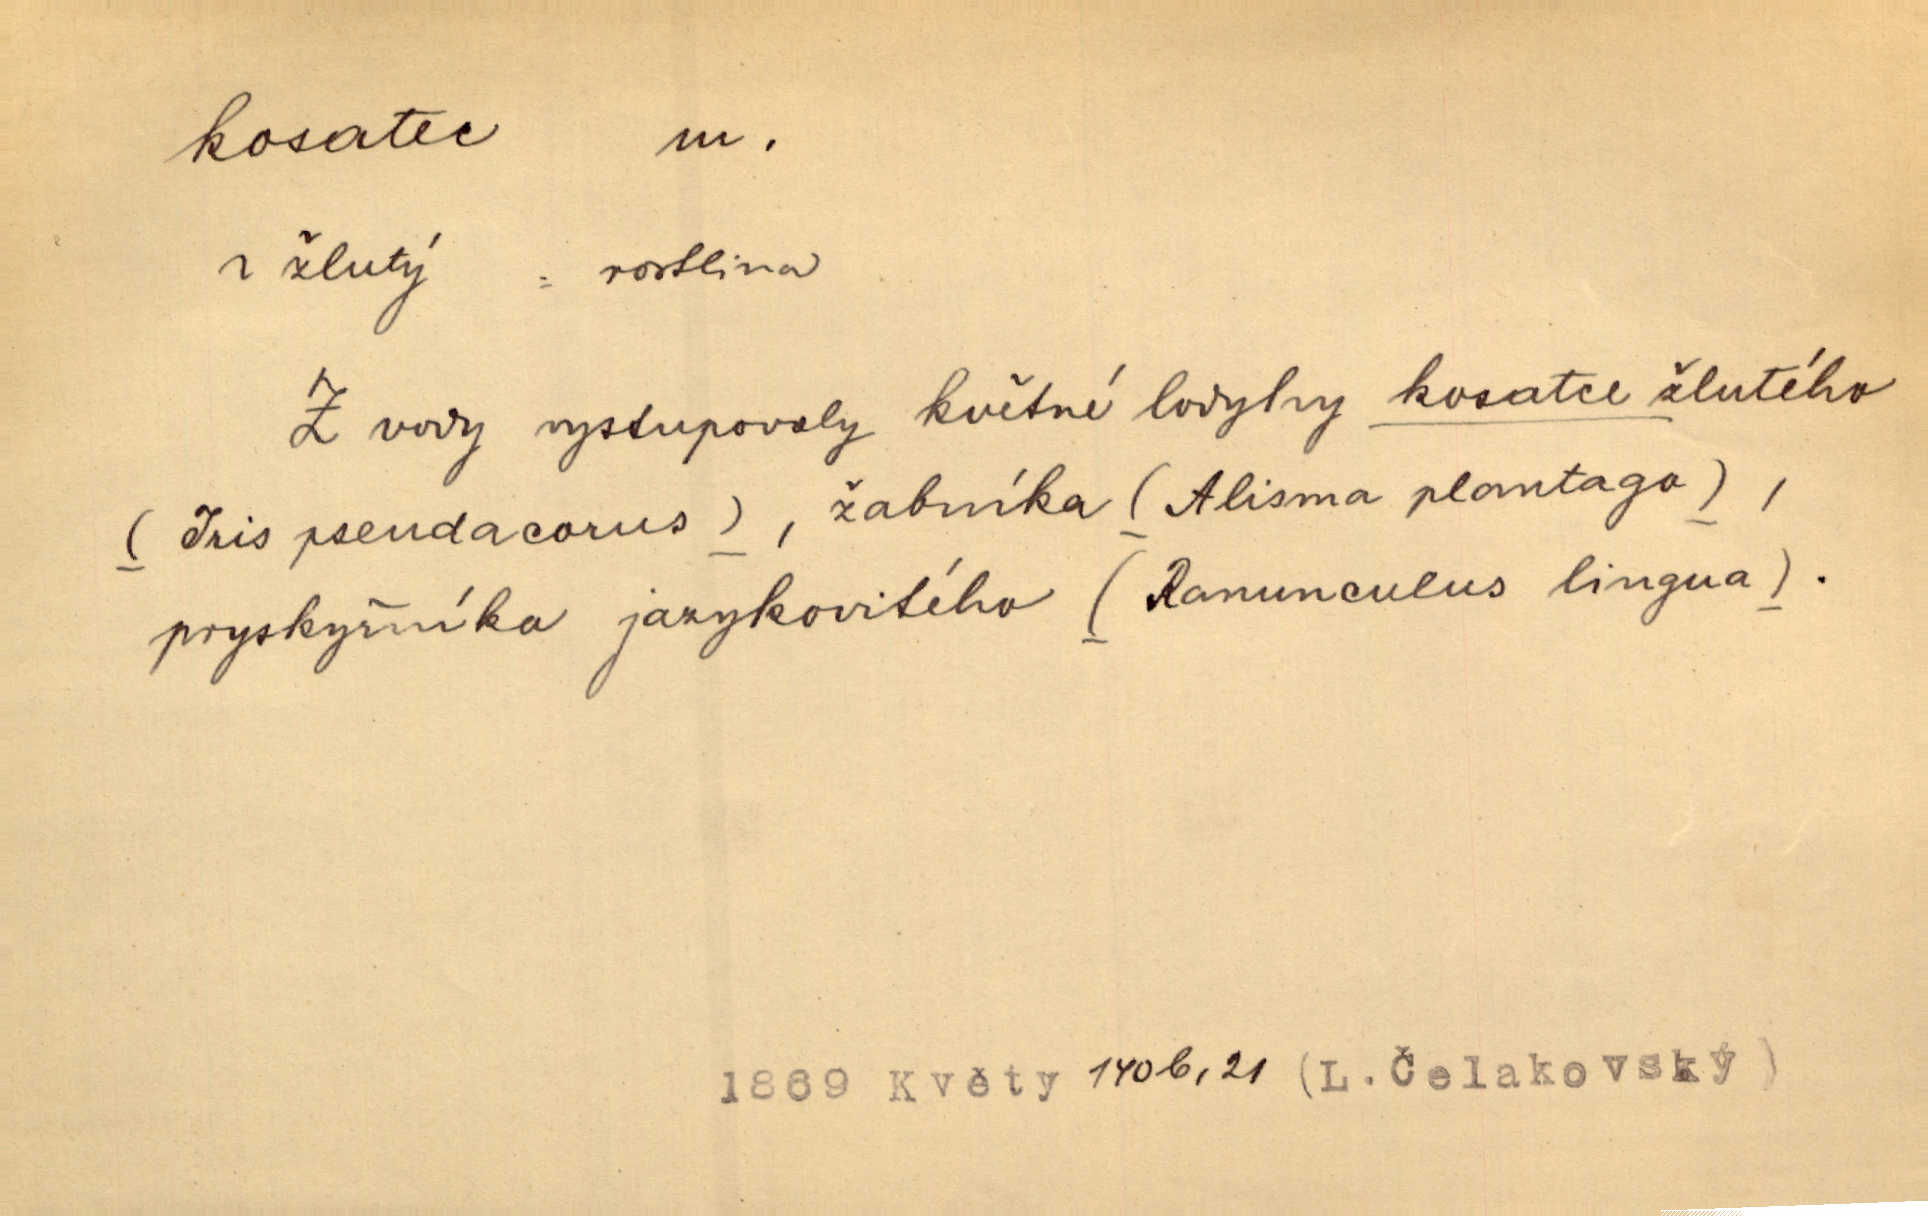 kosatec m.
~ žlutý = rostlina
Z vody vystupovaly květné lodyhy kosatce žlutého
( Iris pseudacorus ) , žabníka ( Alisma plantago ) ,
pryskyřníka jazykovitého ( Ranunculus lingua ) .
1869 Květy 140b, 21 (L. Čelakovský)